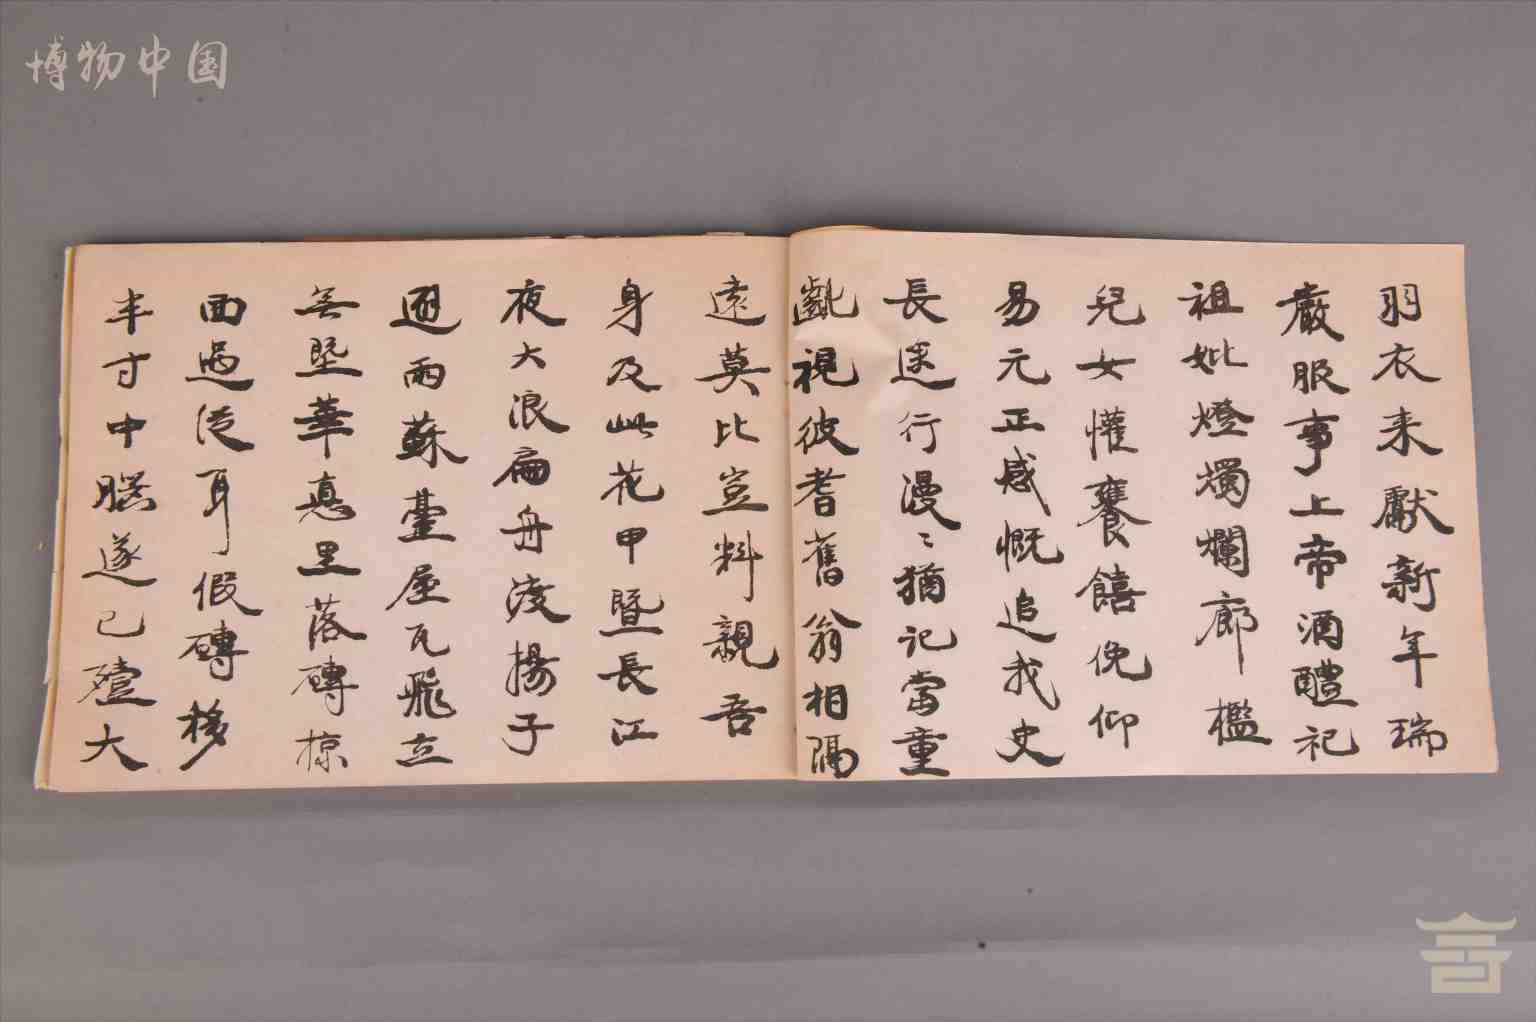 博物中国
羽衣来獻新年瑞
嚴服事上帝酒醴祀
祖妣燈燭爛廊檻
兒女懽餐饎俛仰
易元正感慨追我史
長途行漫〻猶記當童
齓視彼耆舊翁相隔
遠莫比豈料親吾
身及此花甲暨長江
夜大浪扁舟淩揚子
迴雨蘇臺屋瓦飛立
無墜華意里落磚掠
面過從耳假磚移
半寸中腦遂已殪大